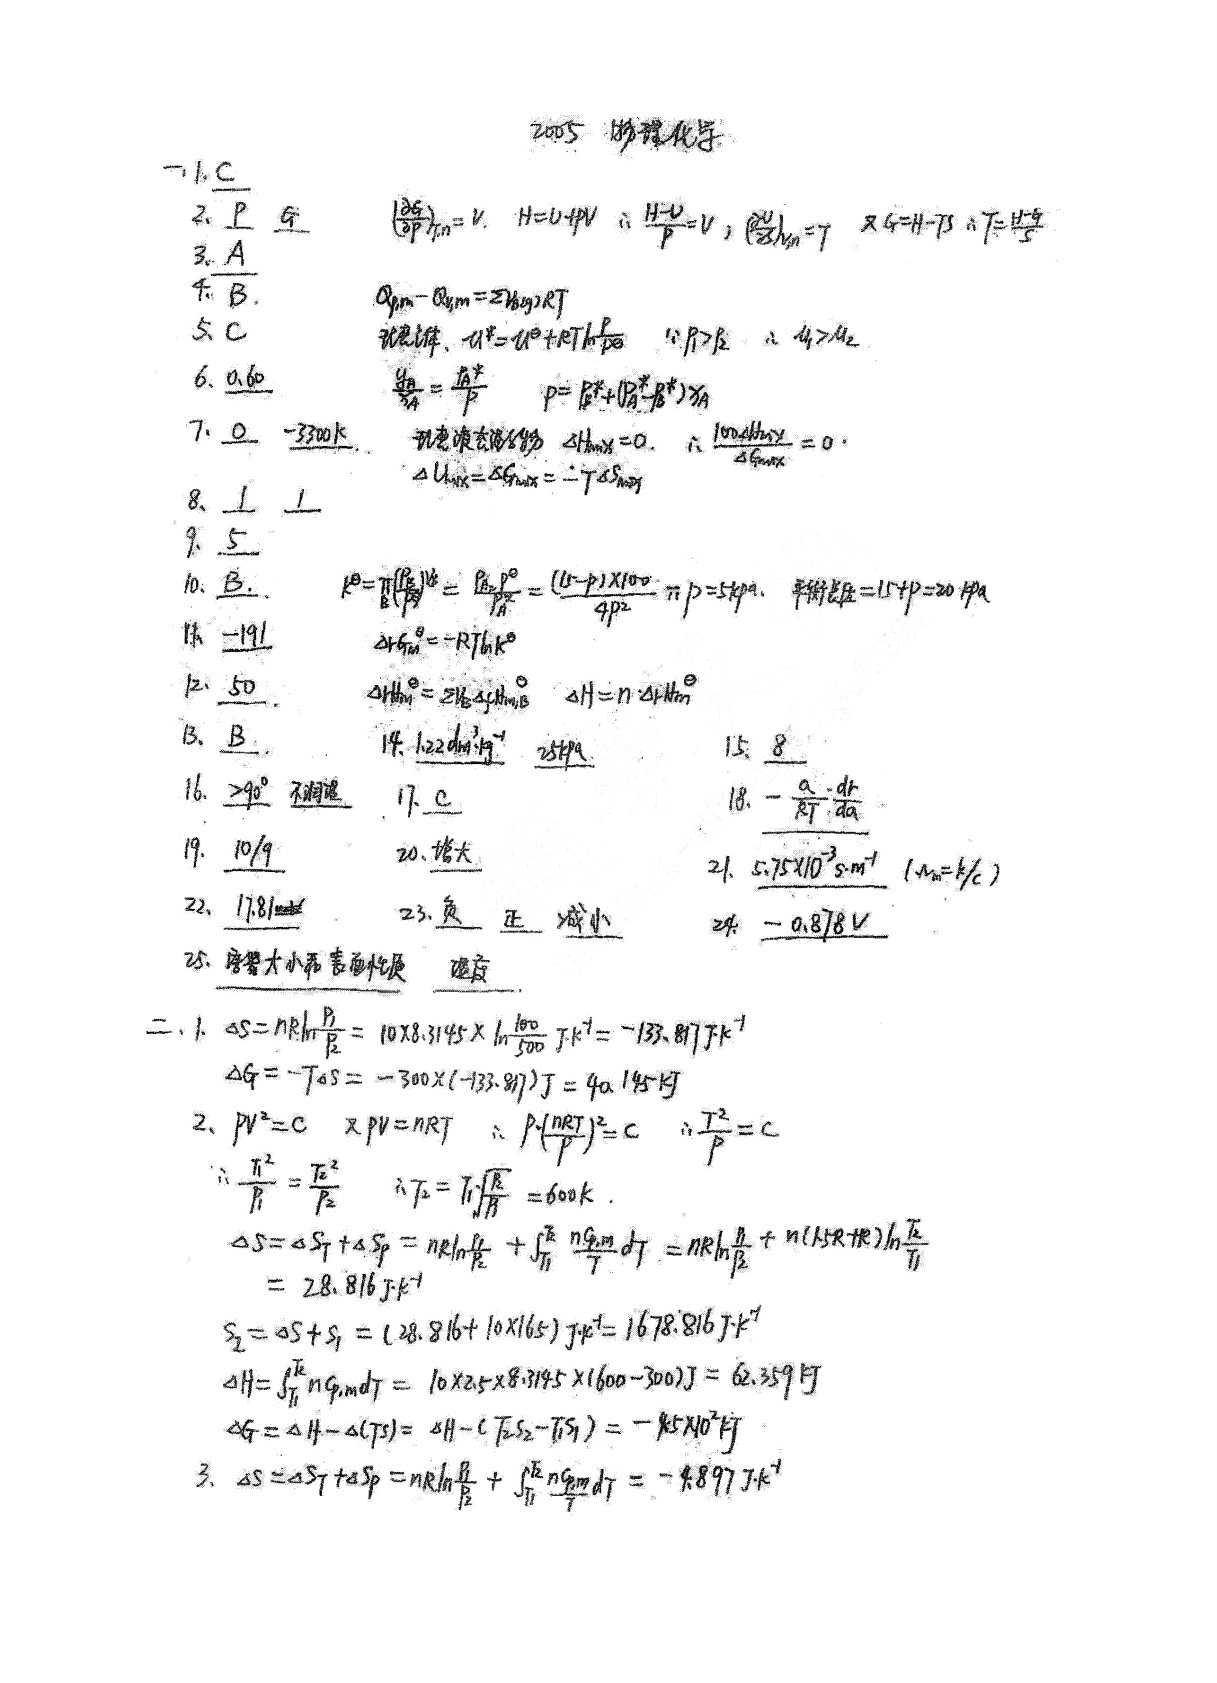 2005 物理化学
一、1. C
2、 P G (∂G/∂p)T,n = V. H=U+pV ∴ (H-U)/p = V, (∂U/∂S)V,n = T 又G=H-TS ∴T=(H-G)/S
3. A
4. B. Qp,m - Qv,m = ΣνB(g)RT
5. C 理想气体、u* = u⊖ + RT ln p/p⊖ ∵ p1>p2 ∴ u1>u2
6. 0.60 yA/xA = pA*/p p = pB* + (pA* - pB*)xA
7. 0 -3300K 理想液态混合物 ΔHmix=0. ∴ 100ΔHmix/ΔGmix = 0.
ΔUmix = ΔGmix = -TΔSmix
8、 1 1
9. 5
10. B. K⊖ = ΠB(pB/p⊖)^νB = pA2 p⊖/pA² = (15-p)×100/4p² ∴ p=5kpa. 平衡总压=15+p=20kpa
11. -191 ΔrGm⊖ = -RTlnK⊖
12. 50 ΔrHm⊖ = ΣνBΔfHm,B⊖ ΔH = n·ΔrHm⊖
13、 B 14. 1.22dm³·kg⁻¹ 25kpa 15. 8
16. >90° 不润湿 17. C 18. - a/RT · dr/da
19. 10/9 20、增大 21. 5.75×10⁻³ s·m⁻¹ (Λm=k/c)
22、 17.81 23. 负 正 减小 24. -0.878V
25. 容器大小和表面性质 温度
二、1. ΔS = nRln p1/p2 = 10×8.3145×ln 100/500 J·K⁻¹ = -133.817J·K⁻¹
ΔG = -TΔS = -300×(-133.817)J = 40.145KJ
2、 pV²=C 又pV=nRT ∴ p·(nRT/p)²=C ∴ T²/p = C
∴ T1²/p1 = T2²/p2 ∴T2 = T1√(p2/p1) = 600K.
ΔS = ΔST+ΔSp = nRln p1/p2 + ∫T1→T2 nCp,m/T dT = nRln p1/p2 + n(1.5R+R)ln T2/T1
= 28.816J·K⁻¹
S2 = ΔS+S1 = (28.816+10×165)J·K⁻¹ = 1678.816J·K⁻¹
ΔH = ∫T1→T2 nCp,mdT = 10×2.5×8.3145×(600-300)J = 62.359KJ
ΔG = ΔH-Δ(TS) = ΔH-(T2S2-T1S1) = -4.5×10²KJ
3、 ΔS = ΔST+ΔSp = nRln p1/p2 + ∫T1→T2 nCp,m/T dT = -4.897J·K⁻¹